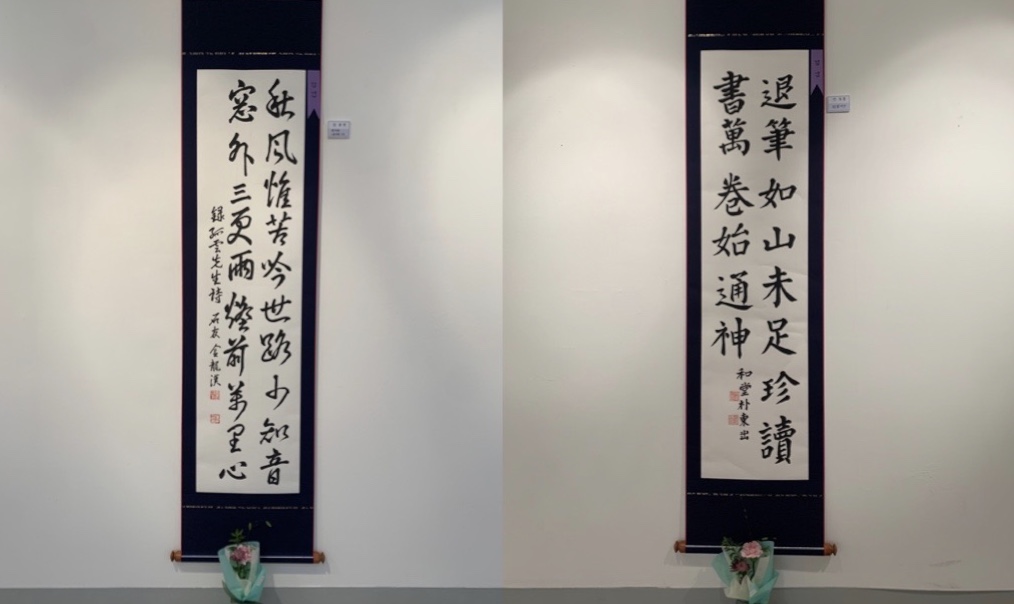 秋风惟苦吟世路少知音
窓外三更雨燈前萬里心
錄孤雲先生詩 石友 金龍漢
退筆如山未足珍讀
書萬卷始通神
和堂朴東出